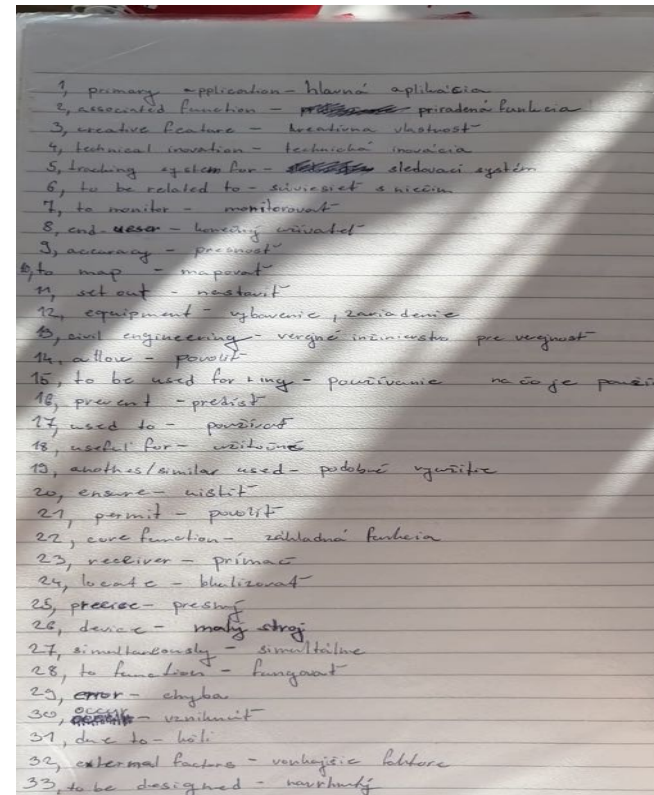 1, primary application - hlavná aplikácia
2, associated function - priradená funkcia
3, creative feature - kreatívna vlastnosť
4, technical inovation - technická inovácia
5, tracking system for - sledovací systém
6, to be related to - súvisieť s niečím
7, to monitor - monitorovať
8, end-user - konečný užívateľ
9, accuracy - presnosť
to map - mapovať
11, set out - nastaviť
12, equipment - vybavenie, zariadenie
13, civil engineering - verejné inžinierstvo pre verejnosť
14, allow - povoliť
15, to be used for + ing - používanie na čo je
16, prevent - predísť
17, used to - používať
18, useful for - užitočné
19, similar used - podobné využitie
20, ensure - uistiť
21, permit - povoliť
22, core function - základná funkcia
23, receiver - prímač
24, locate -
25, precise - presný
26, device - malý stroj
27, simultaneously - simultálne
28, to function - fungovať
29, error - chyba
30, occur - vzniknúť
31, due to - kôli
32, external factors - vonkajšie faktore
33, to be designed - navrhnutý